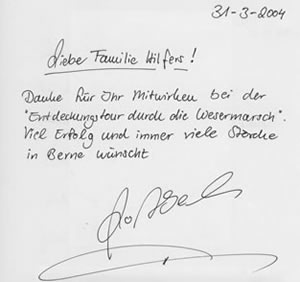 31-3-2004
Lieber Familie Hilfers!
Danke für Ihr Mitwirken bei der
"Entdeckungstour durch die Wesermarsch".
Viel Erfolg und immer viele Störche
in Berne wünscht